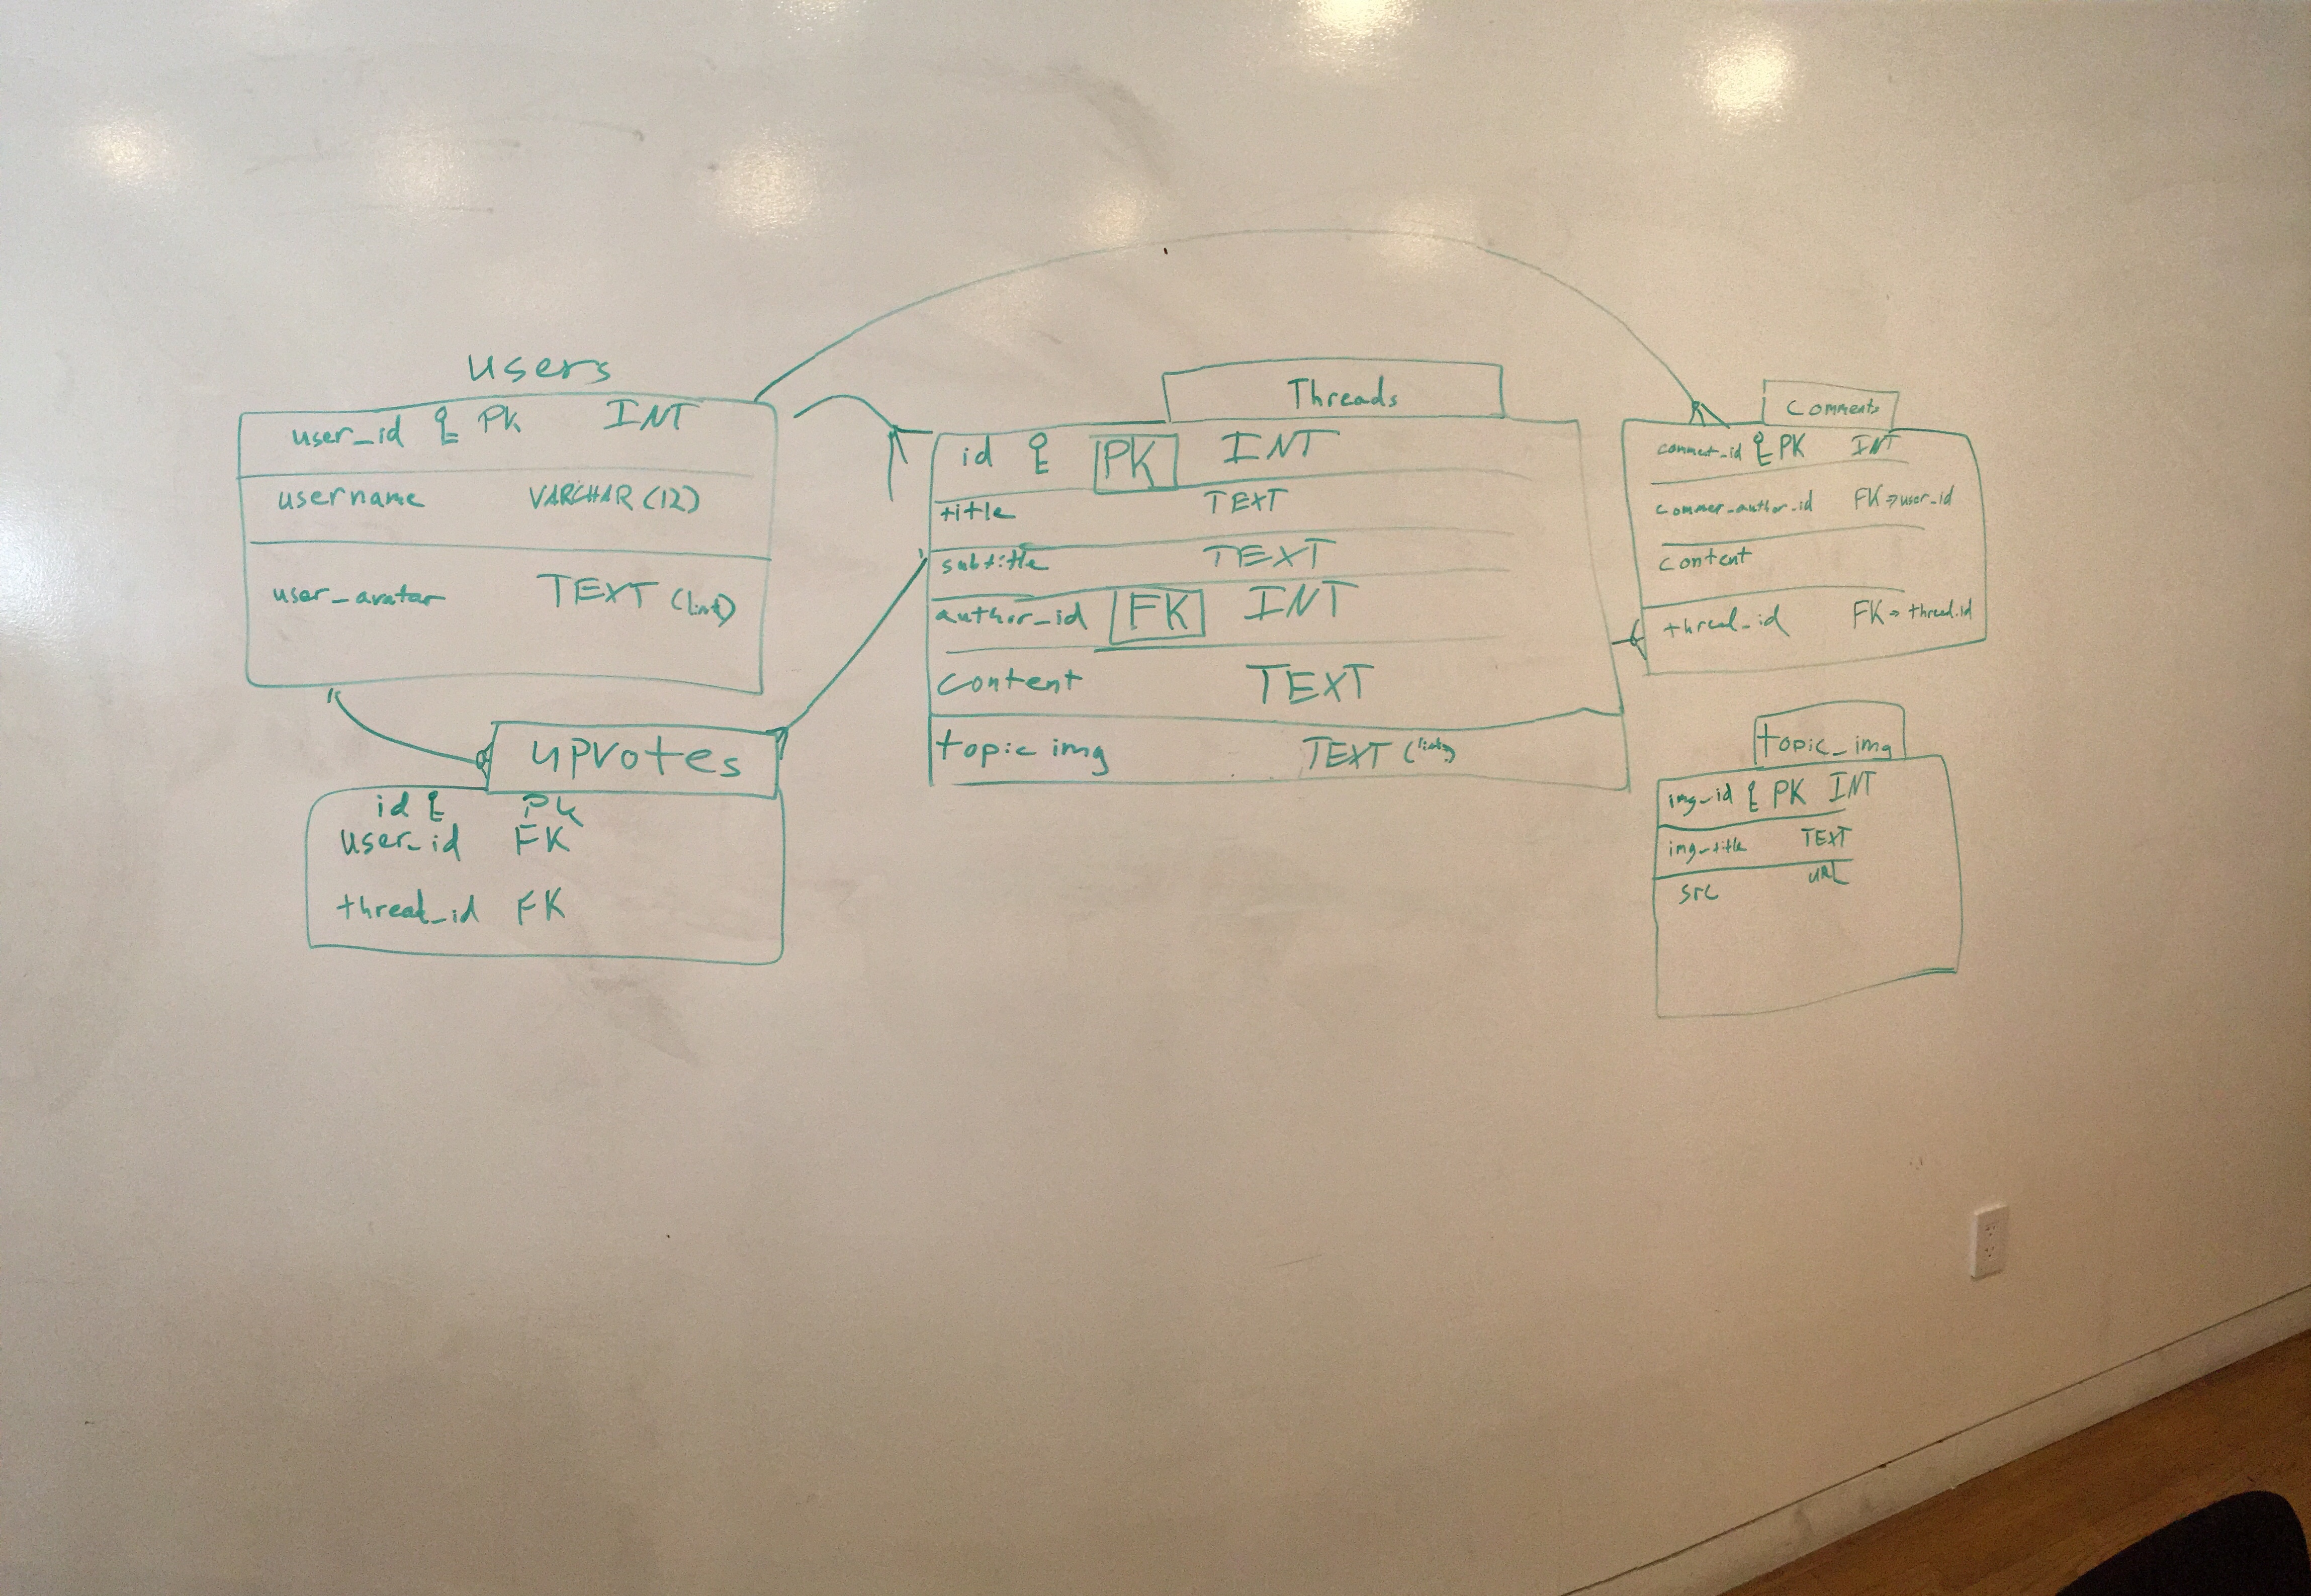 users
user_id PK INT
username VARCHAR (12)
user_avatar TEXT (link)
upvotes
id PK
user_id FK
thread_id FK
Threads
id PK INT
title TEXT
subtitle TEXT
author_id FK INT
content TEXT
topic img TEXT
Comments
comment_id PK INT
commer_author_id FK => user_id
content
thread_id FK => thread.id
topic_img
img_id PK INT
img_title TEXT
src URL